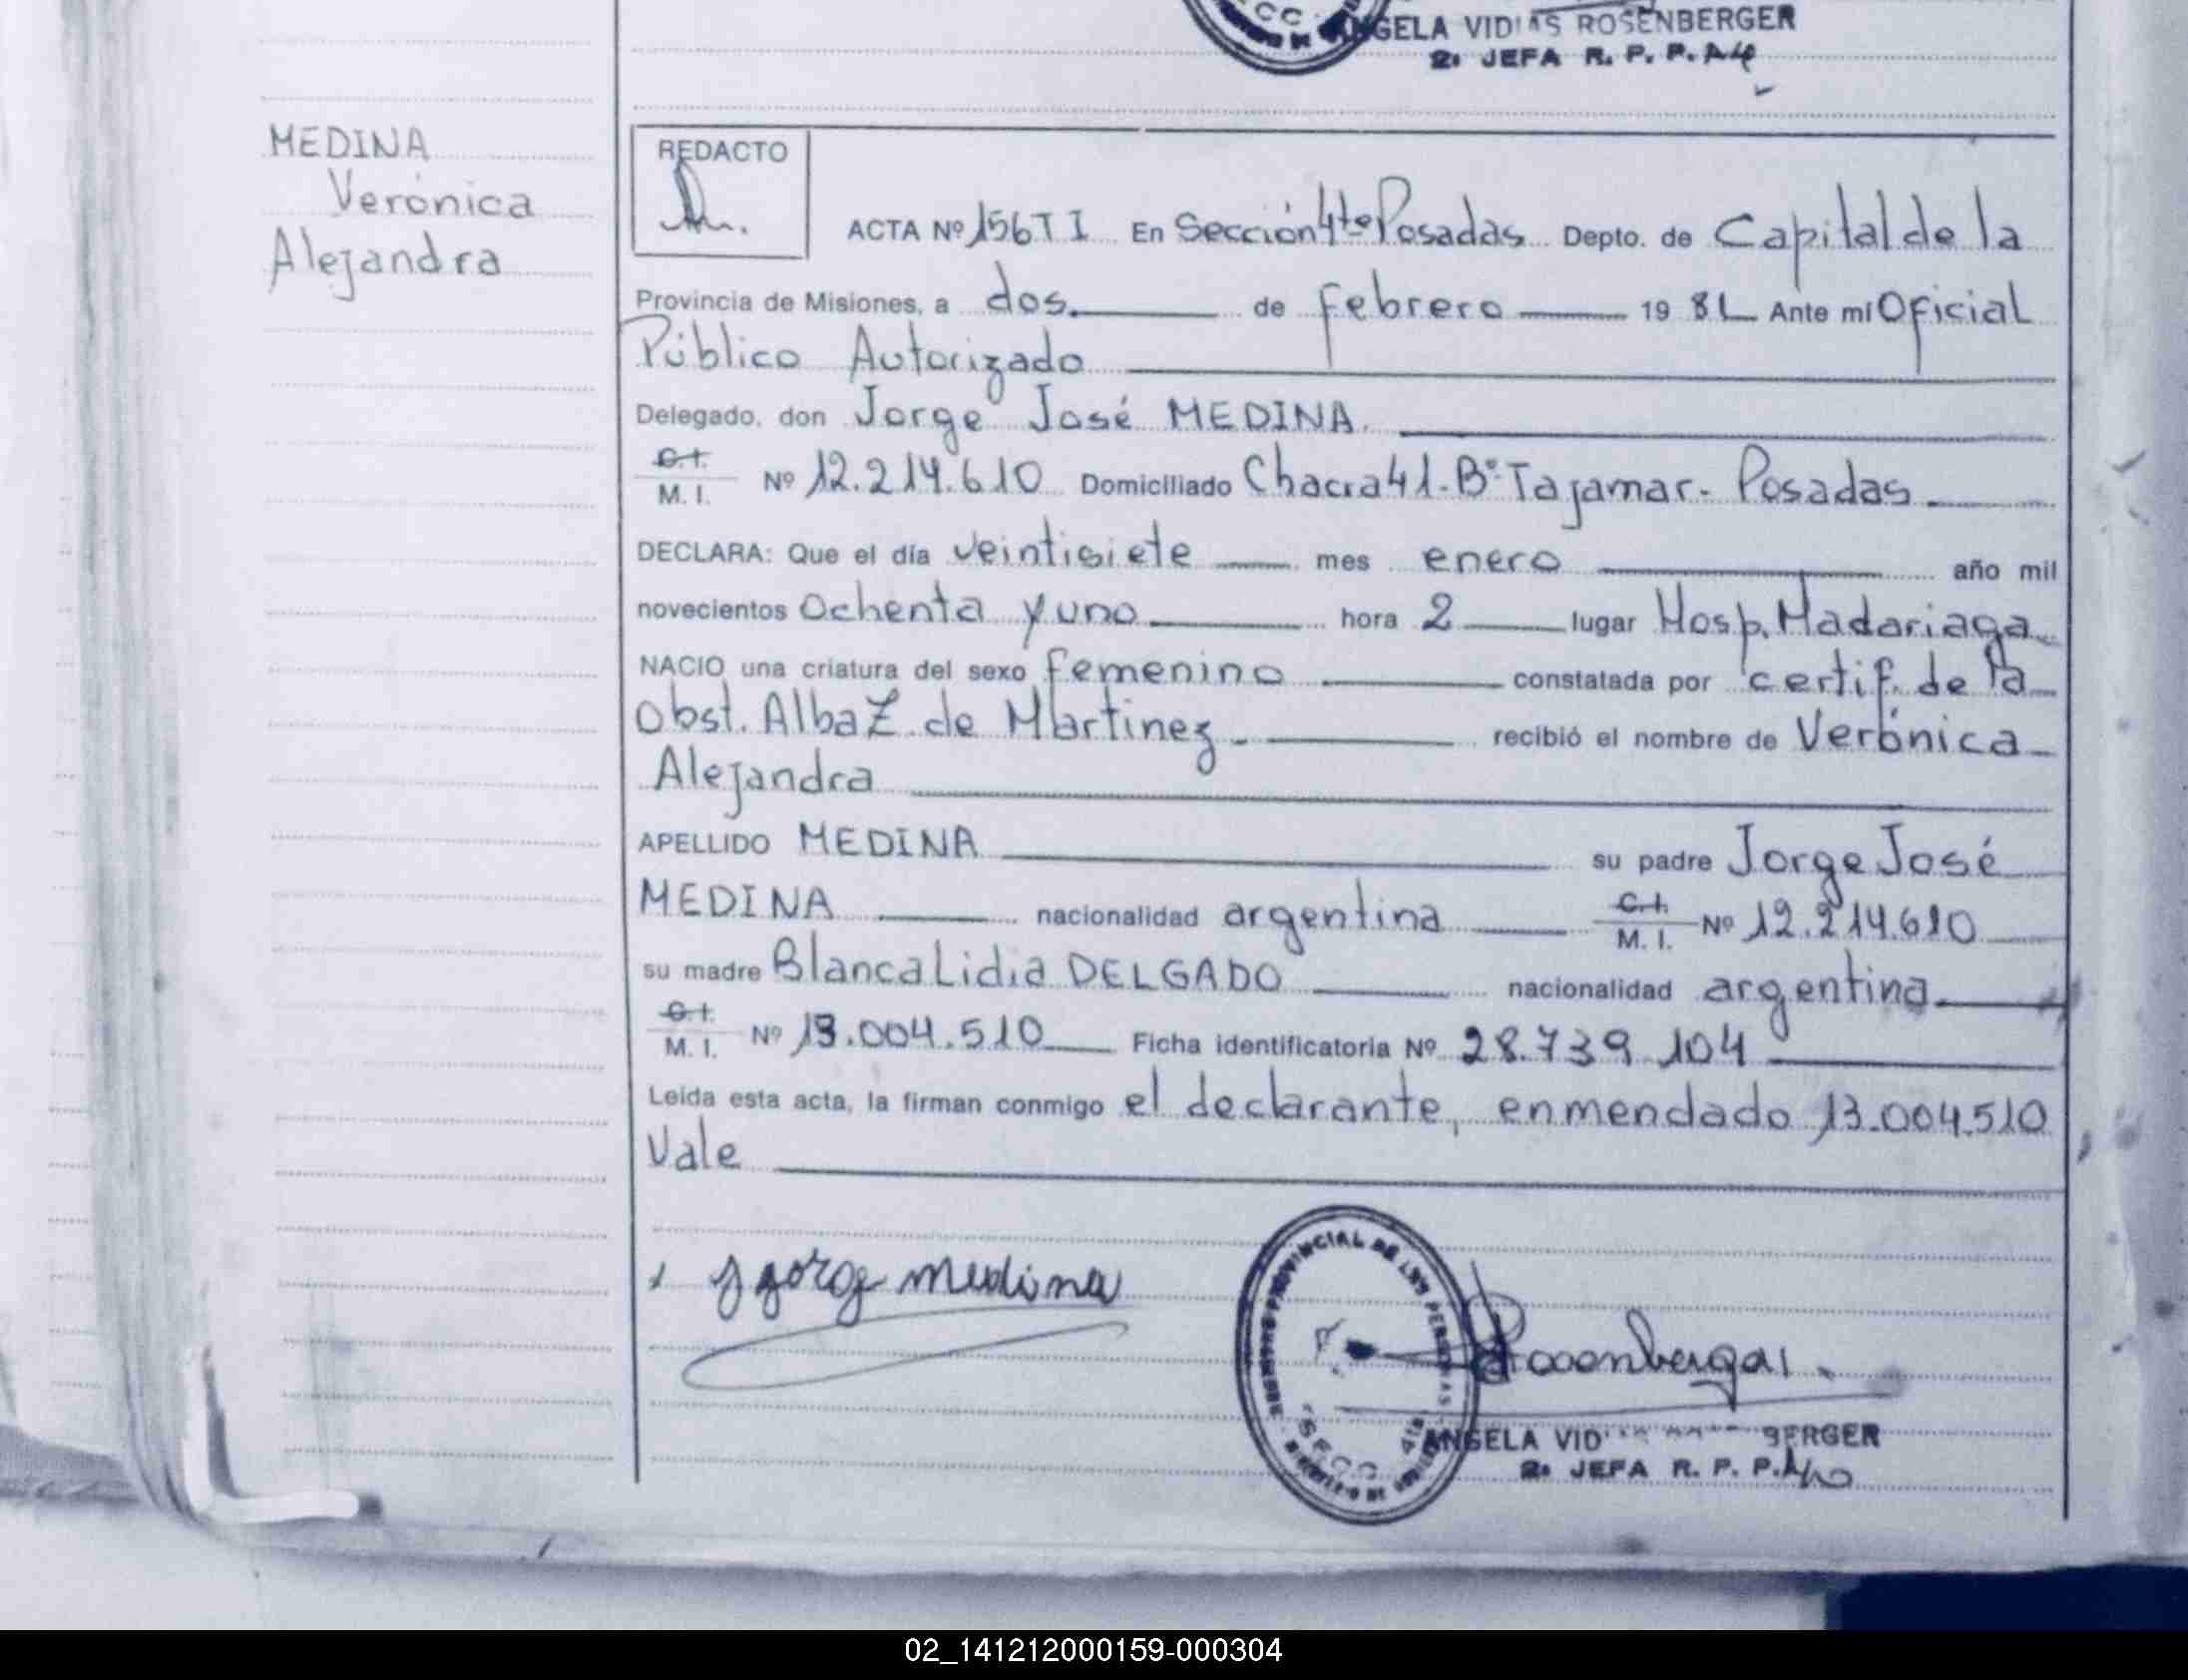 ANGELA VIDIAS ROSENBERGER
2. JEFA R. P. P.
MEDINA
Verónica
Alejandra
REDACTO
ACTA Nº 156 T I En Sección 4ta Posadas Depto. de Capital de la
Provincia de Misiones, a dos. de febrero 19 81 Ante mí Oficial
Público Autorizado
Delegado, don Jorge José MEDINA.
C.I.
M. I. Nº 12.214.610 Domiciliado Chacra 41-Bº Tajamar- Posadas
DECLARA: Que el día veintisiete mes enero año mil
novecientos Ochenta y uno hora 2 lugar Hosp. Madariaga
NACIO una criatura del sexo femenino constatada por certif. de la
Obst. Alba Z. de Martinez recibió el nombre de Verónica
Alejandra
APELLIDO MEDINA su padre Jorge José
MEDINA nacionalidad argentina C.I. M. I. Nº 12.214.610
su madre Blanca Lidia DELGADO nacionalidad argentina
C.I.
M. I. Nº 13.004.510 Ficha identificatoria Nº 28.739 104
Leída esta acta, la firman conmigo el declarante, enmendado 13.004.510
Vale
Jorge medina
REGISTRO PROVINCIAL DE LAS PERSONAS
Rosenberger
ANGELA VID BERGER
2. JEFA R. P. P.
02_141212000159-000304